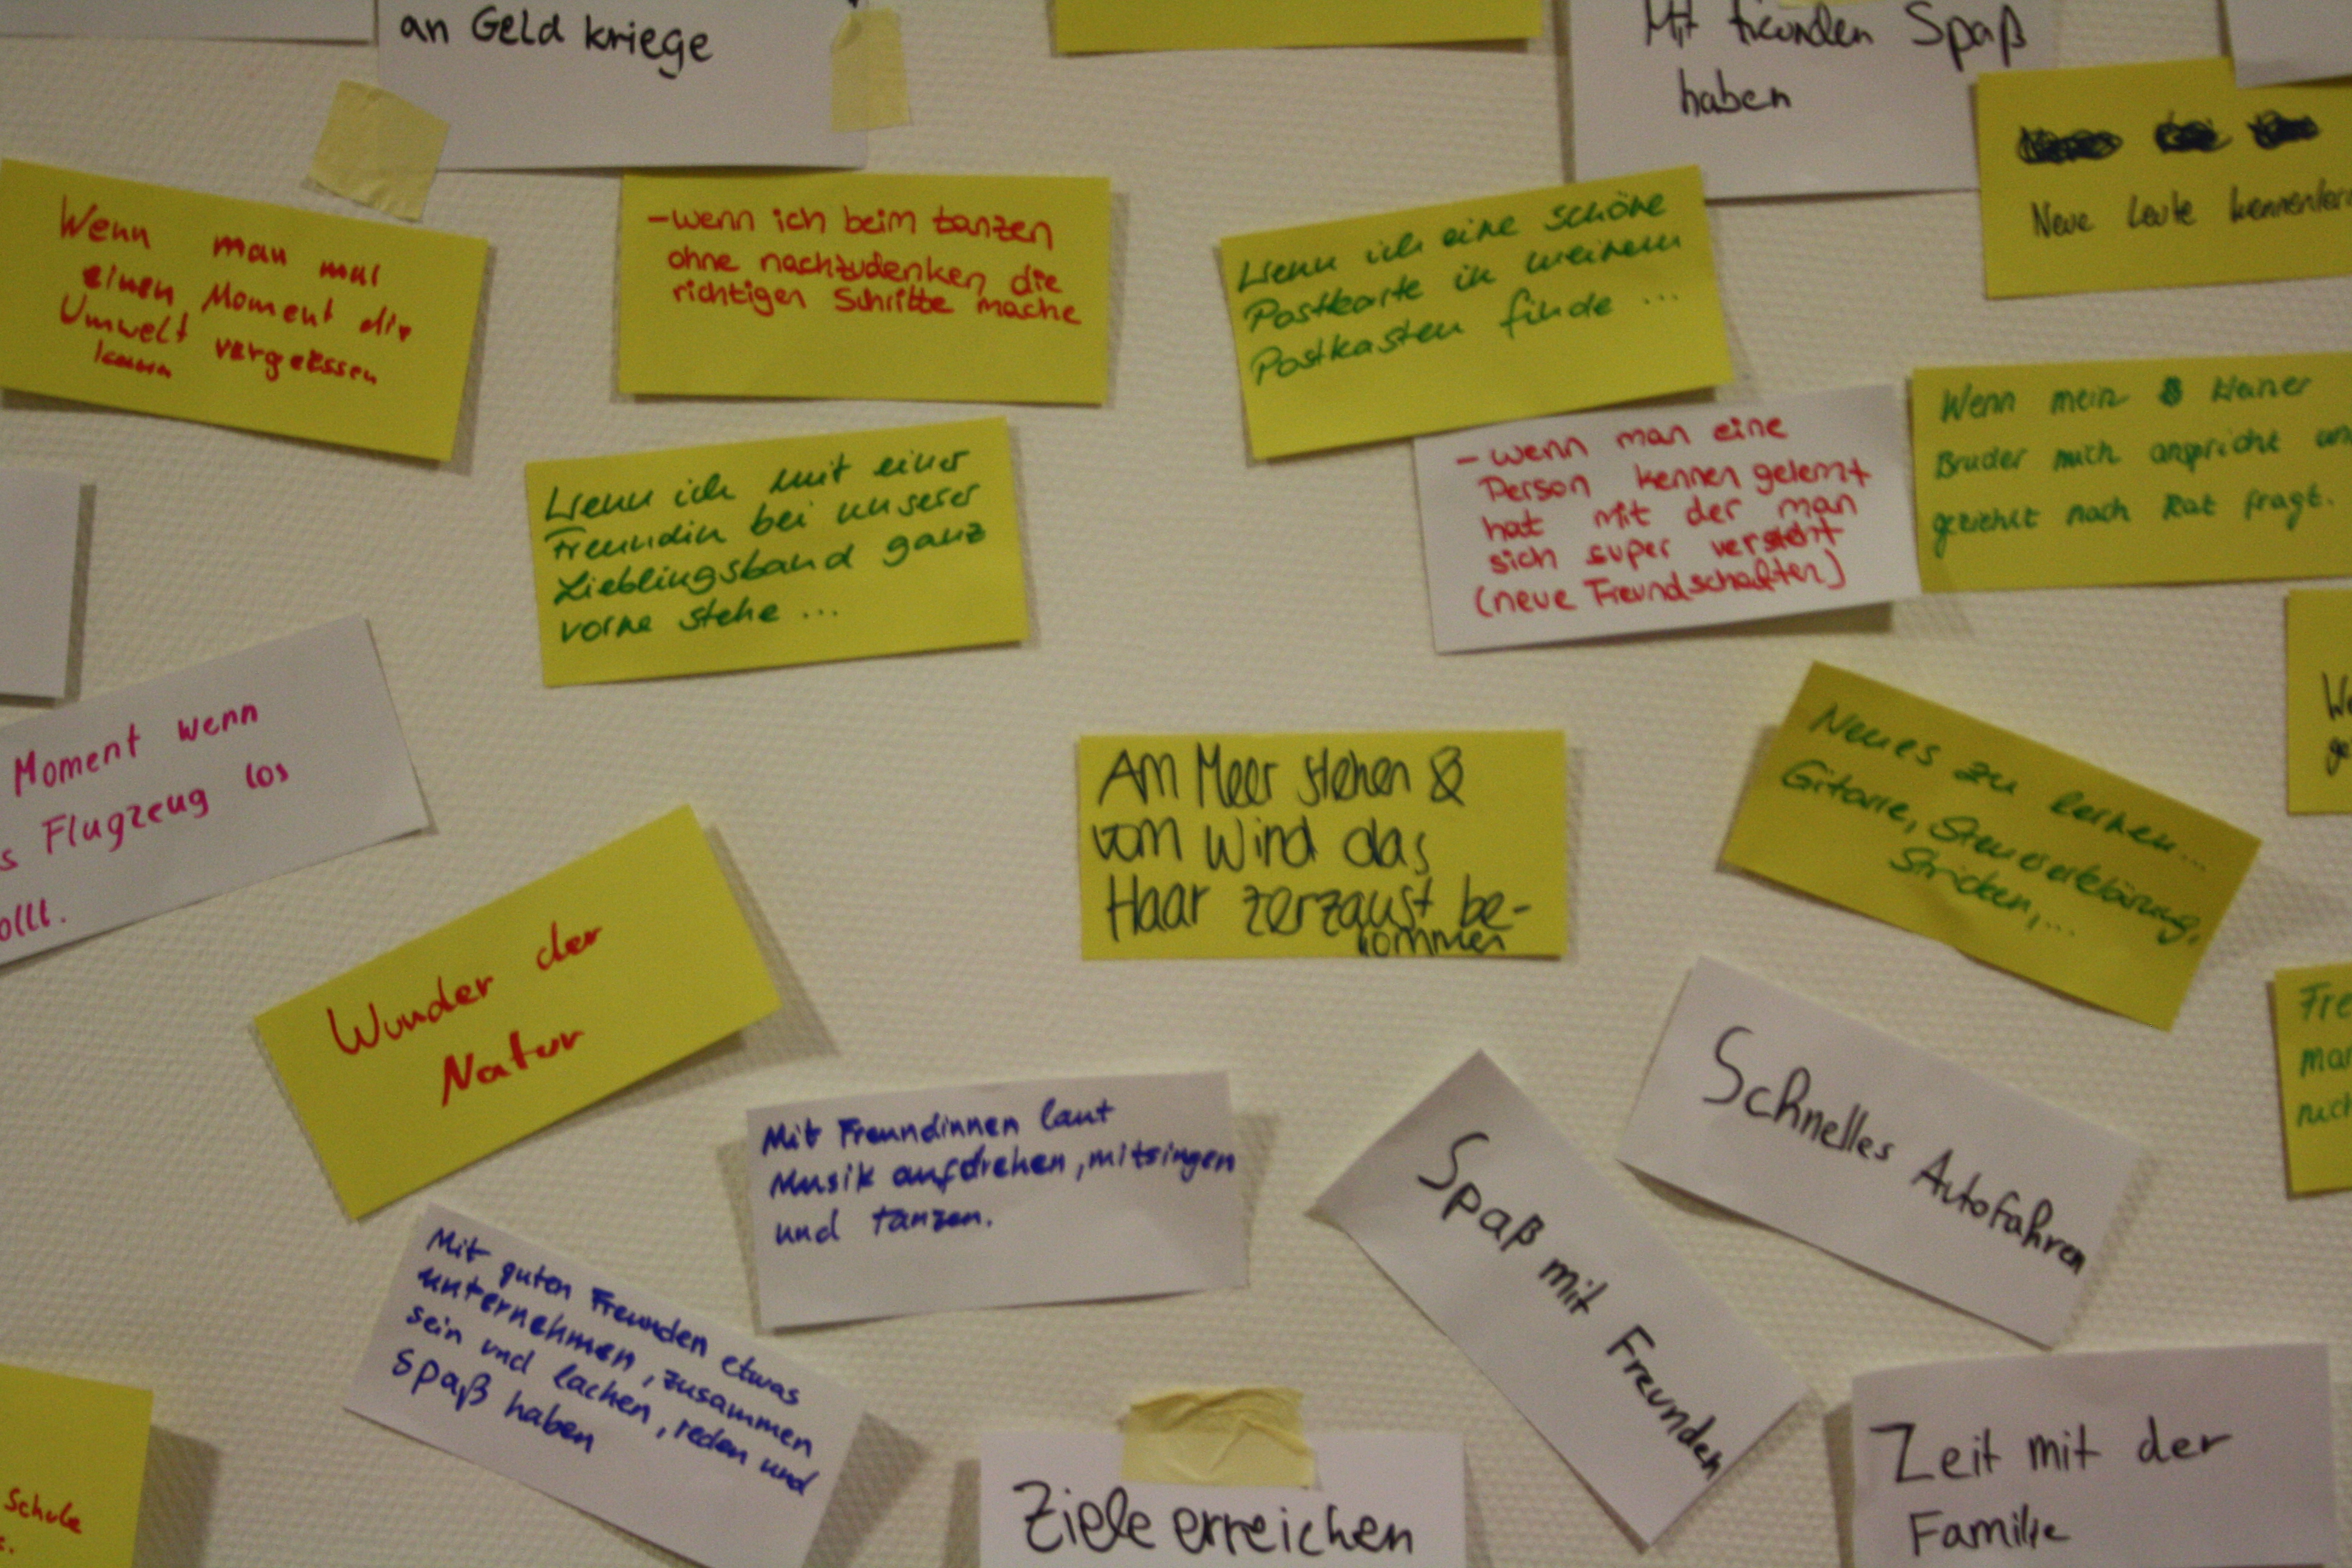 an Geld kriege
Mit freunden Spaß
haben
Neue Leute
Wenn man mal
einen Moment die
Umwelt vergessen
kann
-wenn ich beim tanzen
ohne nachzudenken die
richtigen Schritte mache
Wenn ich eine schöne
Postkarte in meinem
Postkasten finde ...
Wenn mein kleiner
Bruder mich anspricht
geziehlt nach Rat fragt.
- wenn man eine
Person kennen gelernt
hat mit der man
sich super versteht
(neue Freundschaften)
Wenn ich mit einer
Freundin bei unserer
Lieblingsband ganz
vorne stehe ...
Moment wenn
s Flugzeug los
ollt.
Am Meer stehen &
vom Wind das
Haar zerzaust be-
kommen
Neues zu lernen...
Gitarre, Steuererklärung,
Stricken,...
Wunder der
Natur
Schnelles Autofahren
Mit Freundinnen laut
Musik aufdrehen, mitsingen
und tanzen.
Spaß mit Freunden
Mit guten Freunden etwas
unternehmen, zusammen
sein und lachen, reden und
Spaß haben
Ziele erreichen
Zeit mit der
Familie
Schule